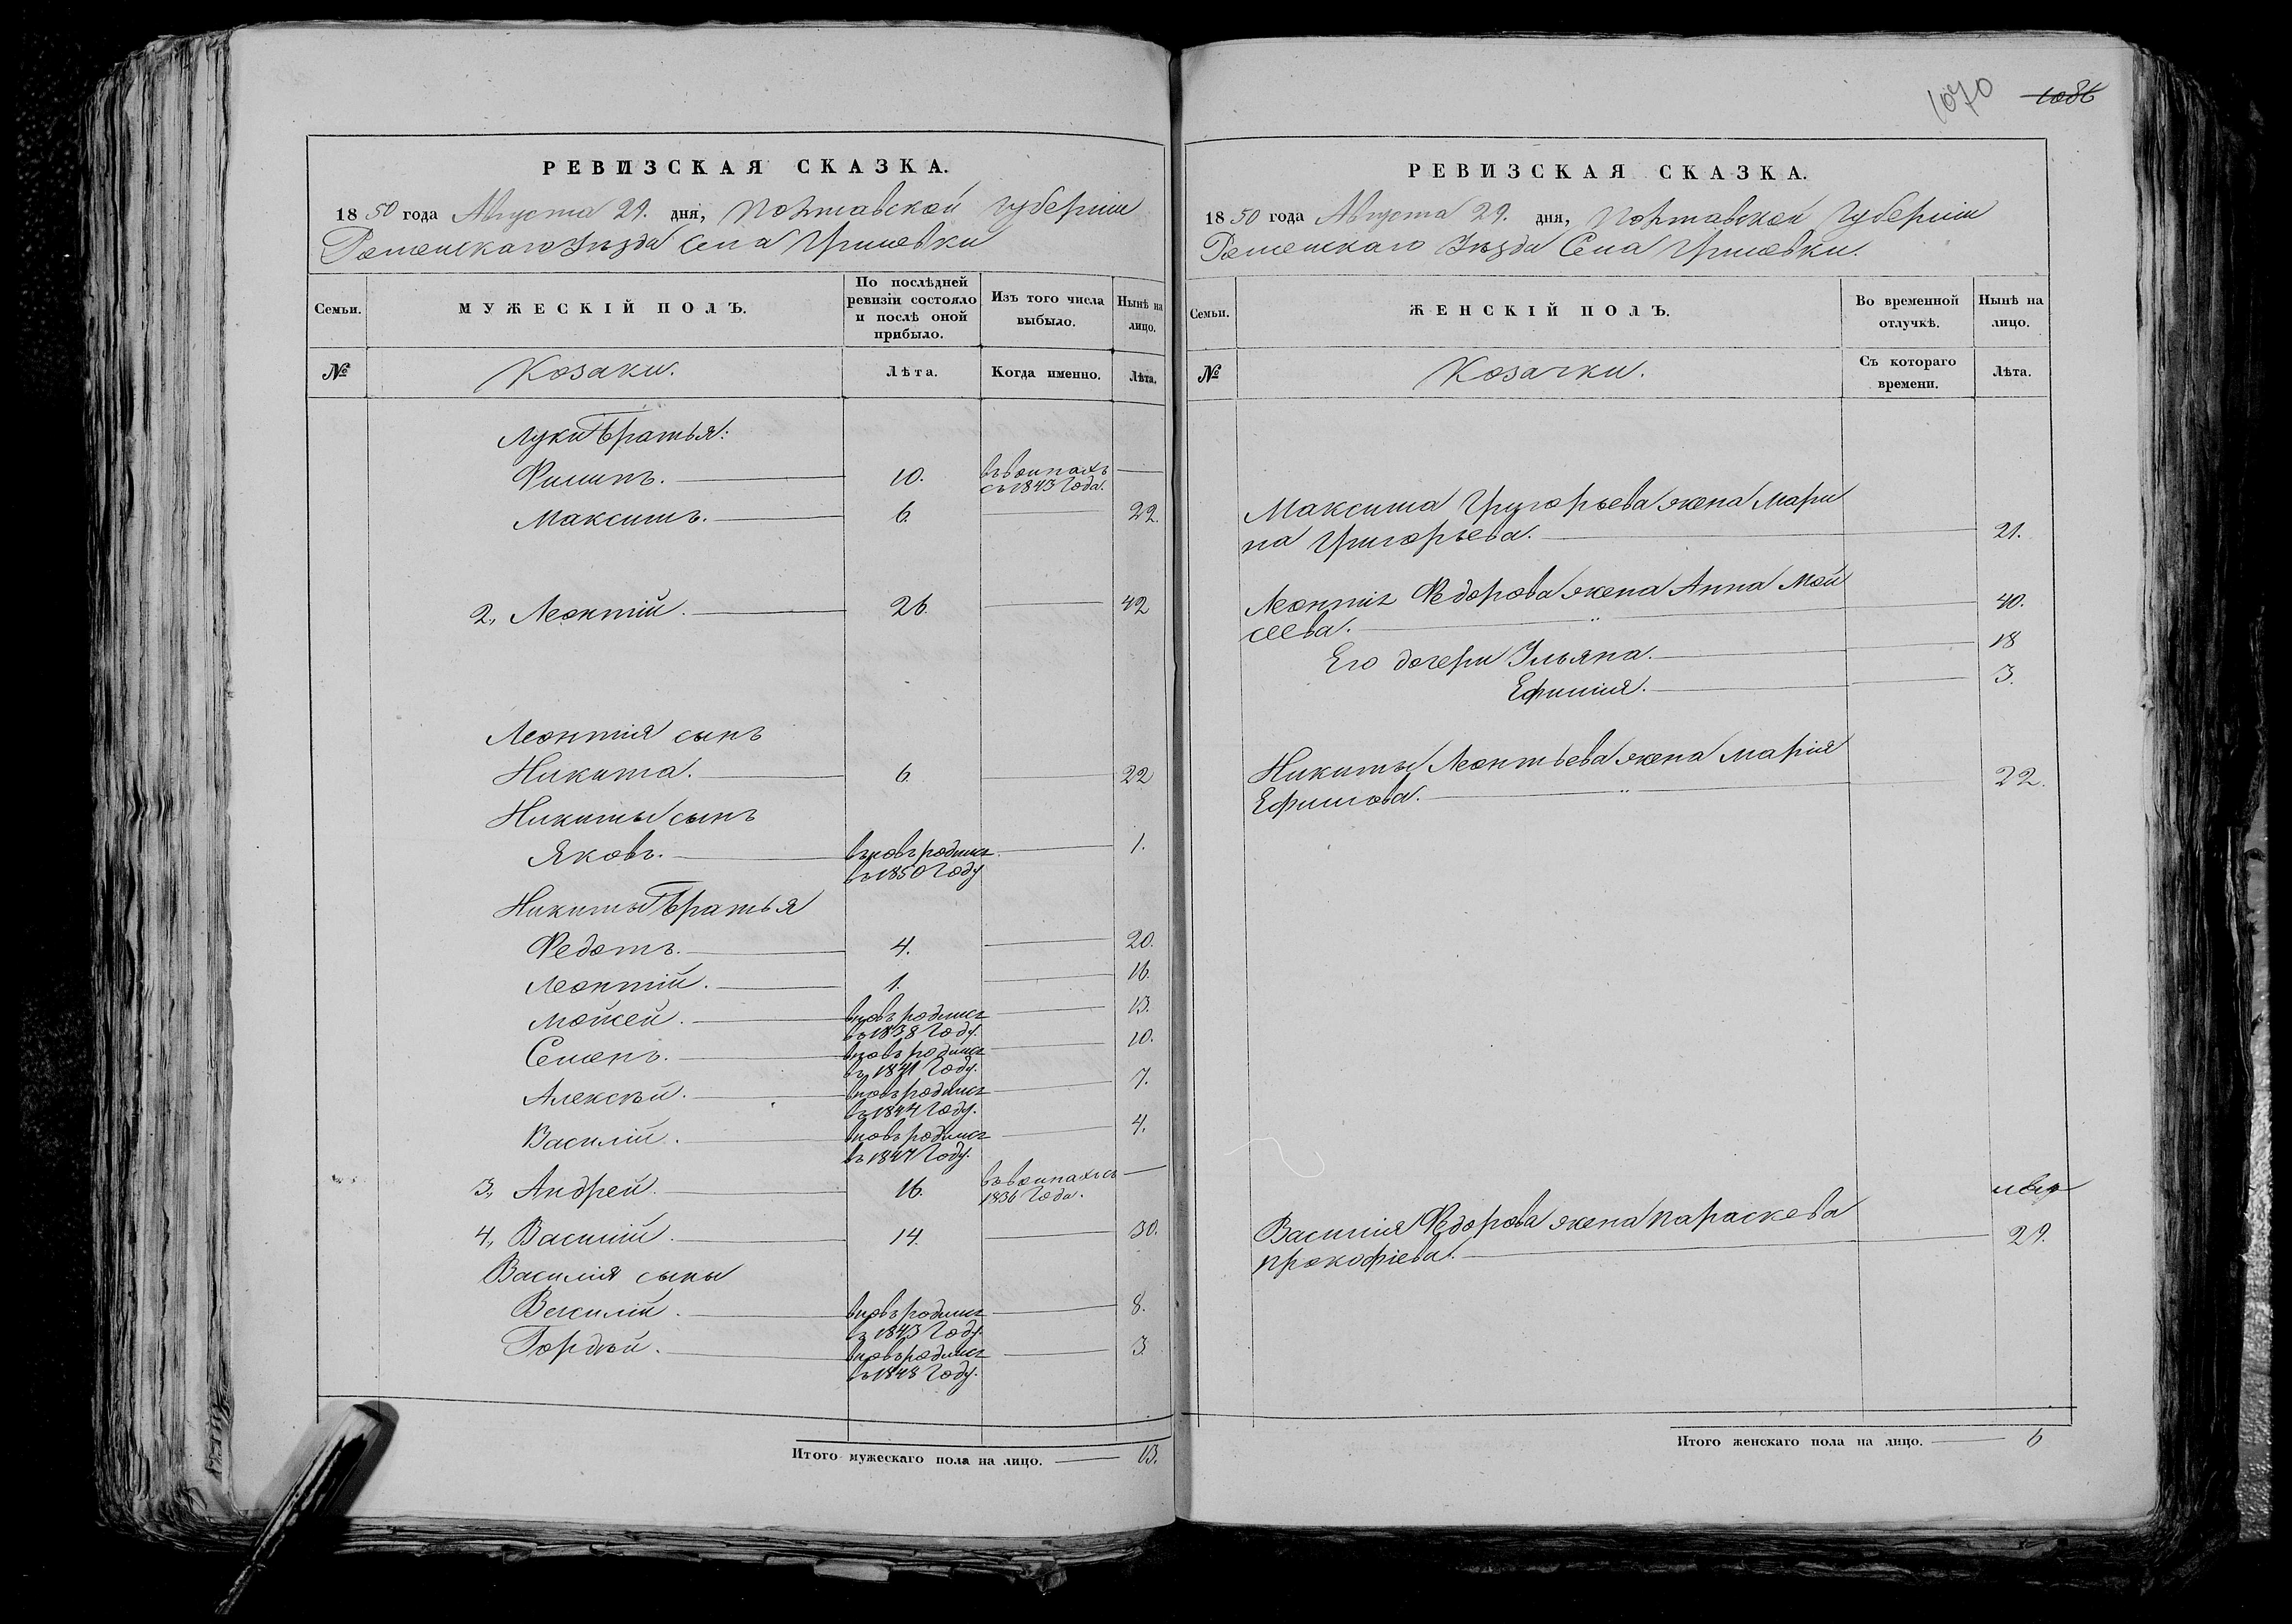 РЕВИЗСКАЯ СКАЗКА.
1850 года Августа 29. дня, Полтавской губерніи
Роменскаго Уезда Села Гришовки
Семьи.
МУЖЕСКІЙ ПОЛЪ.
По послѣдней ревизіи состояло и послѣ оной прибыло.
Изъ того числа выбыло.
Нынѣ на лицо.
№
Козаки.
Лѣта.
Когда именно.
Лѣта.
Луки Братья:
Филипъ. 10. въ воинахъ
съ 1843 года.
Максимъ. 6. 22.
2, Леонтій. 26. 42
Леонтія сынъ
Никита. 6. 22
Никиты сынъ
Яковъ. вновь родился 1.
въ 1850 году
Никиты Братья
Федотъ. 4. 20.
Леонтій. 1. 16.
Мойсей. вновь родился 13.
въ 1838 году.
Семенъ. вновь родился 10.
въ 1841 году.
Алексѣй. вновь родился 7.
въ 1844 году.
Василій. вновь родился 4.
въ 1847 году.
3, Андрей. 16. въ воинахъ съ
1836 года.
4, Василій. 14. 30.
Василія сыны
Василій. вновь родился 8.
въ 1843 году.
Гордѣй. вновь родился 3
въ 1848 году.
Итого мужескаго пола на лицо. 13.
1070 1086
РЕВИЗСКАЯ СКАЗКА.
1850 года Августа 29. дня, Полтавской губерніи
Роменскаго Уезда Села Гришовки.
Семьи.
ЖЕНСКІЙ ПОЛЪ.
Во временной отлучкѣ.
Нынѣ на лицо.
№
Козачки.
Съ котораго времени.
Лѣта.
Максима Григорьева жена Мари
на Григорьева. 21.
Леонтія Федорова жена Анна Мой
сеева. 40.
Его дочери Ульяна. 18
Ефимія. 3.
Никиты Леонтьева жена Марія
Ефимова. 22.
Василія Федорова жена Параскева
Прокофіева. 29.
Итого женскаго пола на лицо. 6